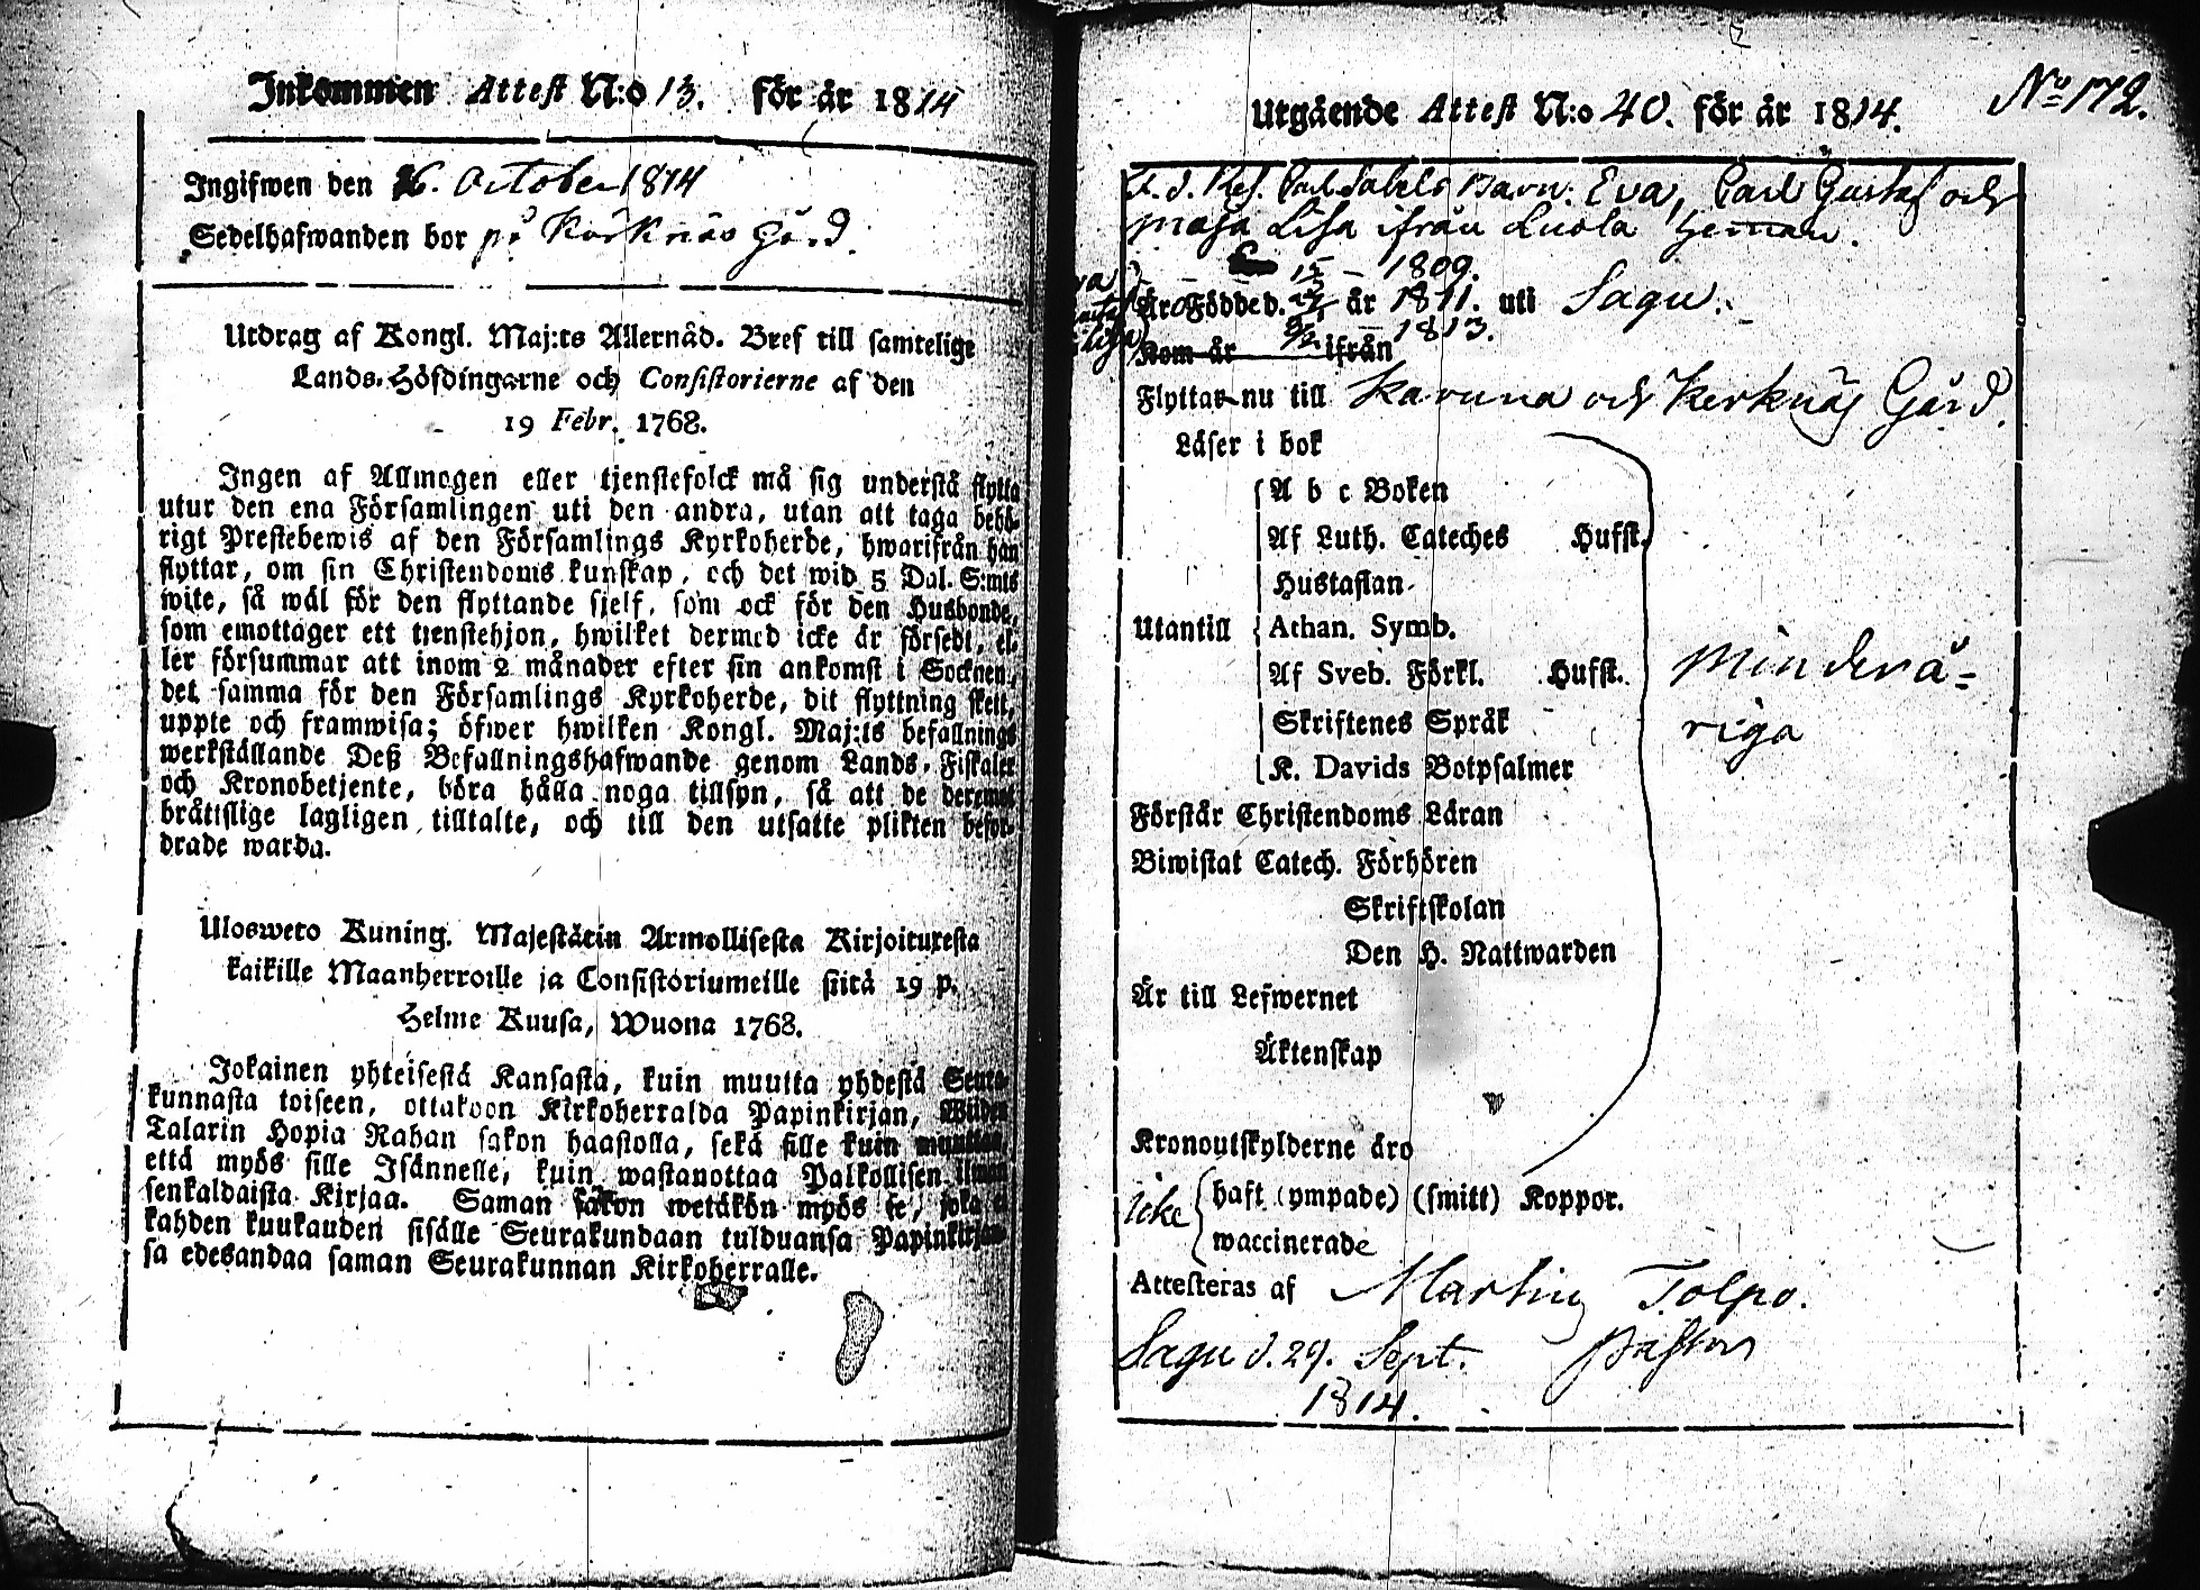 Inkommen Attest N:o 13. för år 1814
Ingifwen den 26. October 1814
Sedelhafwanden bor på Körknäs Gård.
Utdrag af Kongl. Maj:ts Allernåd. Bref till samtelige
Lands-Höfdingarne och Consistorierne af den
19 Febr. 1768.
Ingen af Allmogen eller tjenstefolck må sig understå flytta
utur den ena Församlingen uti den andra, utan att taga behö-
rigt Prestebewis af den Församlings Kyrkoherde, hwarifrån han
flyttar, om sin Christendoms kunskap, och det wid 5 Dal. S:mts
wite, så wäl för den flyttande sjelf, som ock för den Husbonde,
som emottager ett tjenstehjon, hwilket dermed icke är försedt, el-
ler försummar att inom 2 månader efter sin ankomst i Socknen,
det samma för den Församlings Kyrkoherde, dit flyttning skett,
uppte och framwisa; öfwer hwilken Kongl. Maj:ts befallnings
werkställande Deß Befallningshafwande genom Lands-Fiskaler
och Kronobetjente, böra hålla noga tillsyn, så att de deremot
bråttslige lagligen tilltalte, och till den utsatte plikten befor-
drade warda.
Ulosweto Kuning. Majestätin Armollisesta Kirjoituxesta
kaikille Maanherroille ja Consistoriumeille siitä 19 p.
Helme Kuusa, Wuona 1768.
Jokainen yhteisestä Kansasta, kuin muutta yhdestä Seura-
kunnasta toiseen, ottakoon Kirkoherralda Papinkirjan, Wiiden
Talarin Hopia Rahan sakon haastolla, sekä sille kuin muuttaa,
että myös sille Isännelle, kuin wastanottaa Palkollisen ilman
senkaldaista Kirjaa. Saman sakon wetäkön myös se, joka ei
kahden kuukauden sisälle Seurakundaan tulduansa Papinkirjan-
sa edesandaa saman Seurakunnan Kirkoherralle.
No 172.
Utgående Attest N:o 40. för år 1814.
F. d. Carl Sabels Barn: Eva, Carl Gustaf och
Lisa ifrån Luola Heman.
15 – 1809.
Äro Födde d. år 1811. uti Sagu.
1813.
Kom år ifrån
Flyttar nu till Karuna och Kerknäs Gård.
Läser i bok
A b c Boken
Af Luth. Cateches Hufst.
Hustaflan
Utantill Athan. Symb.
Af Sveb. Förkl. Hufst.
Skriftenes Språk
K. Davids Botpsalmer
minderå=
riga
Förstår Christendoms Läran
Biwistat Catech. Förhören
Skriftskolan
Den H. Nattwarden
Är till Lefwernet
Äktenskap
Kronoutskylderne äro
icke haft (ympade) (smitt) Koppor.
waccinerade
Attesteras af Martin Tolpo.
Sagu d. 29. Sept. Pastor
1814.